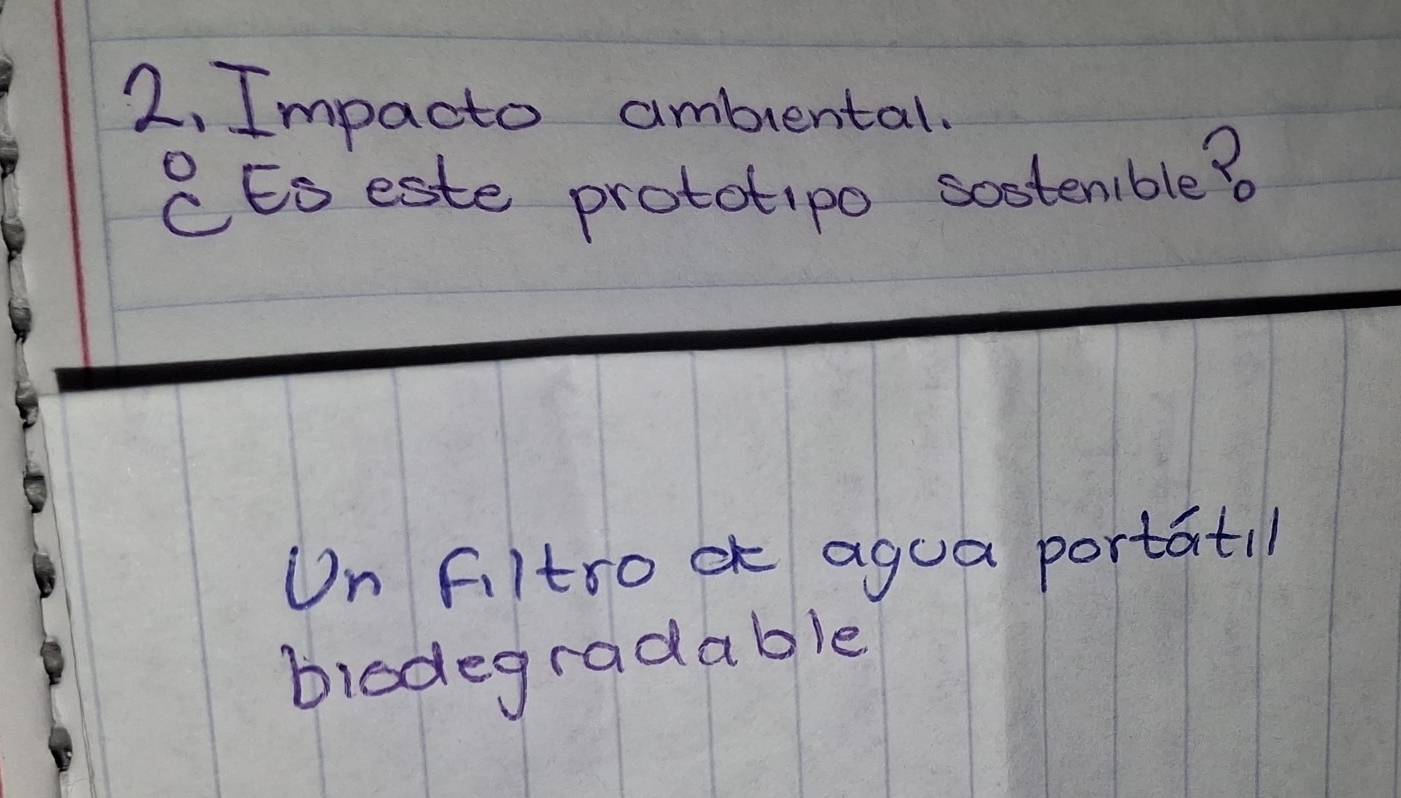 2. Impacto ambiental.
¿Es este prototipo sostenible?
Un filtro de agua portátil
biodegradable